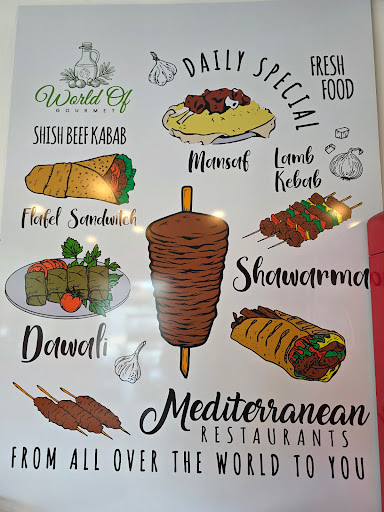 World Of
GOURMET
DAILY SPECIAL
FRESH
FOOD
SHISH BEEF KABAB
Mansaf
Lamb
Kebab
Flafel Sandwitch
Shawarma
Dawali
Mediterranean
RESTAURANTS
FROM ALL OVER THE WORLD TO YOU